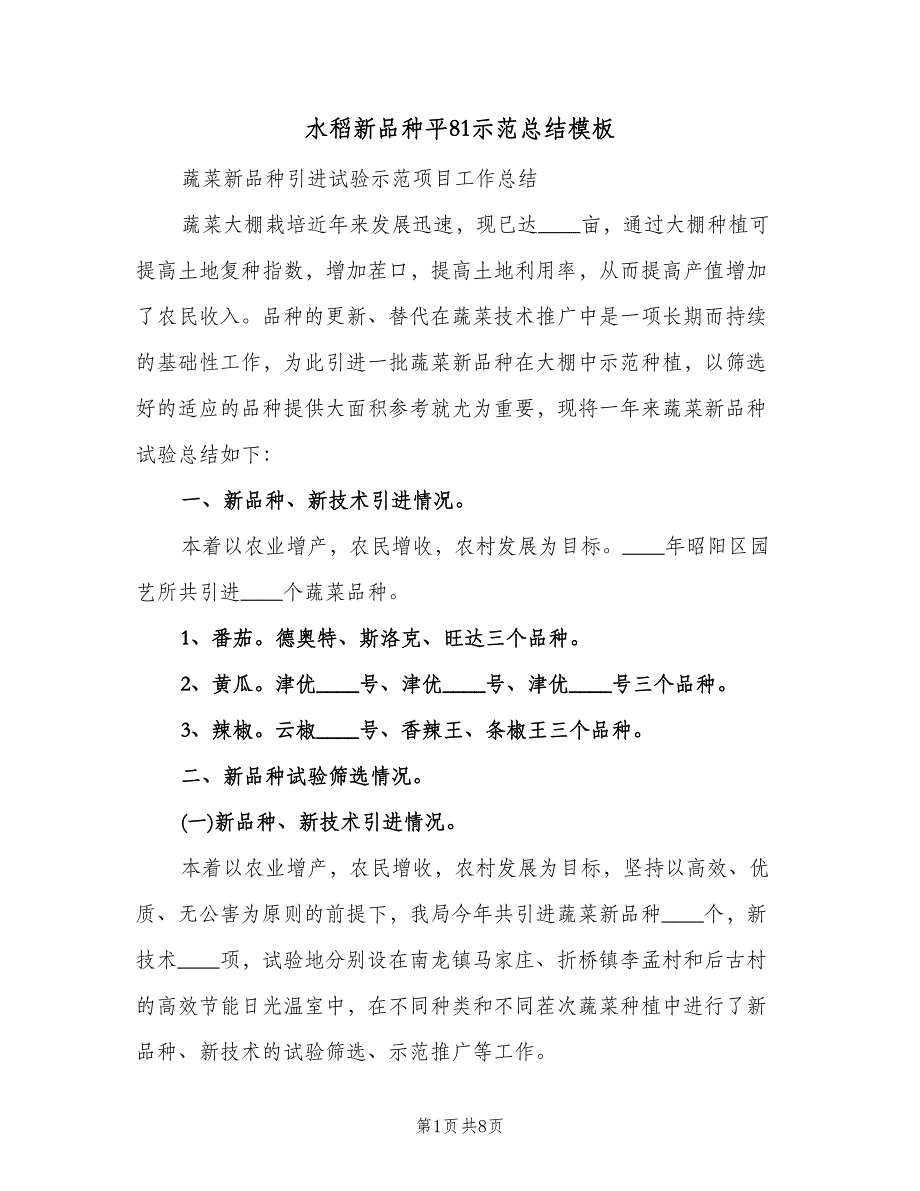 水稻新品种平81示范总结模板
蔬菜新品种引进试验示范项目工作总结
蔬菜大棚栽培近年来发展迅速，现已达____亩，通过大棚种植可
提高土地复种指数，增加茬口，提高土地利用率，从而提高产值增加
了农民收入。品种的更新、替代在蔬菜技术推广中是一项长期而持续
的基础性工作，为此引进一批蔬菜新品种在大棚中示范种植，以筛选
好的适应的品种提供大面积参考就尤为重要，现将一年来蔬菜新品种
试验总结如下：
一、新品种、新技术引进情况。
本着以农业增产，农民增收，农村发展为目标。____年昭阳区园
艺所共引进____个蔬菜品种。
1、番茄。德奥特、斯洛克、旺达三个品种。
2、黄瓜。津优____号、津优____号、津优____号三个品种。
3、辣椒。云椒____号、香辣王、条椒王三个品种。
二、新品种试验筛选情况。
(一)新品种、新技术引进情况。
本着以农业增产，农民增收，农村发展为目标，坚持以高效、优
质、无公害为原则的前提下，我局今年共引进蔬菜新品种____个，新
技术____项，试验地分别设在南龙镇马家庄、折桥镇李孟村和后古村
的高效节能日光温室中，在不同种类和不同茬次蔬菜种植中进行了新
品种、新技术的试验筛选、示范推广等工作。
第1页 共8页